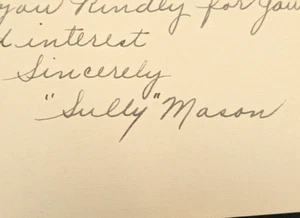 you Kindly for you
interest
Sincerely
"Sully" Mason